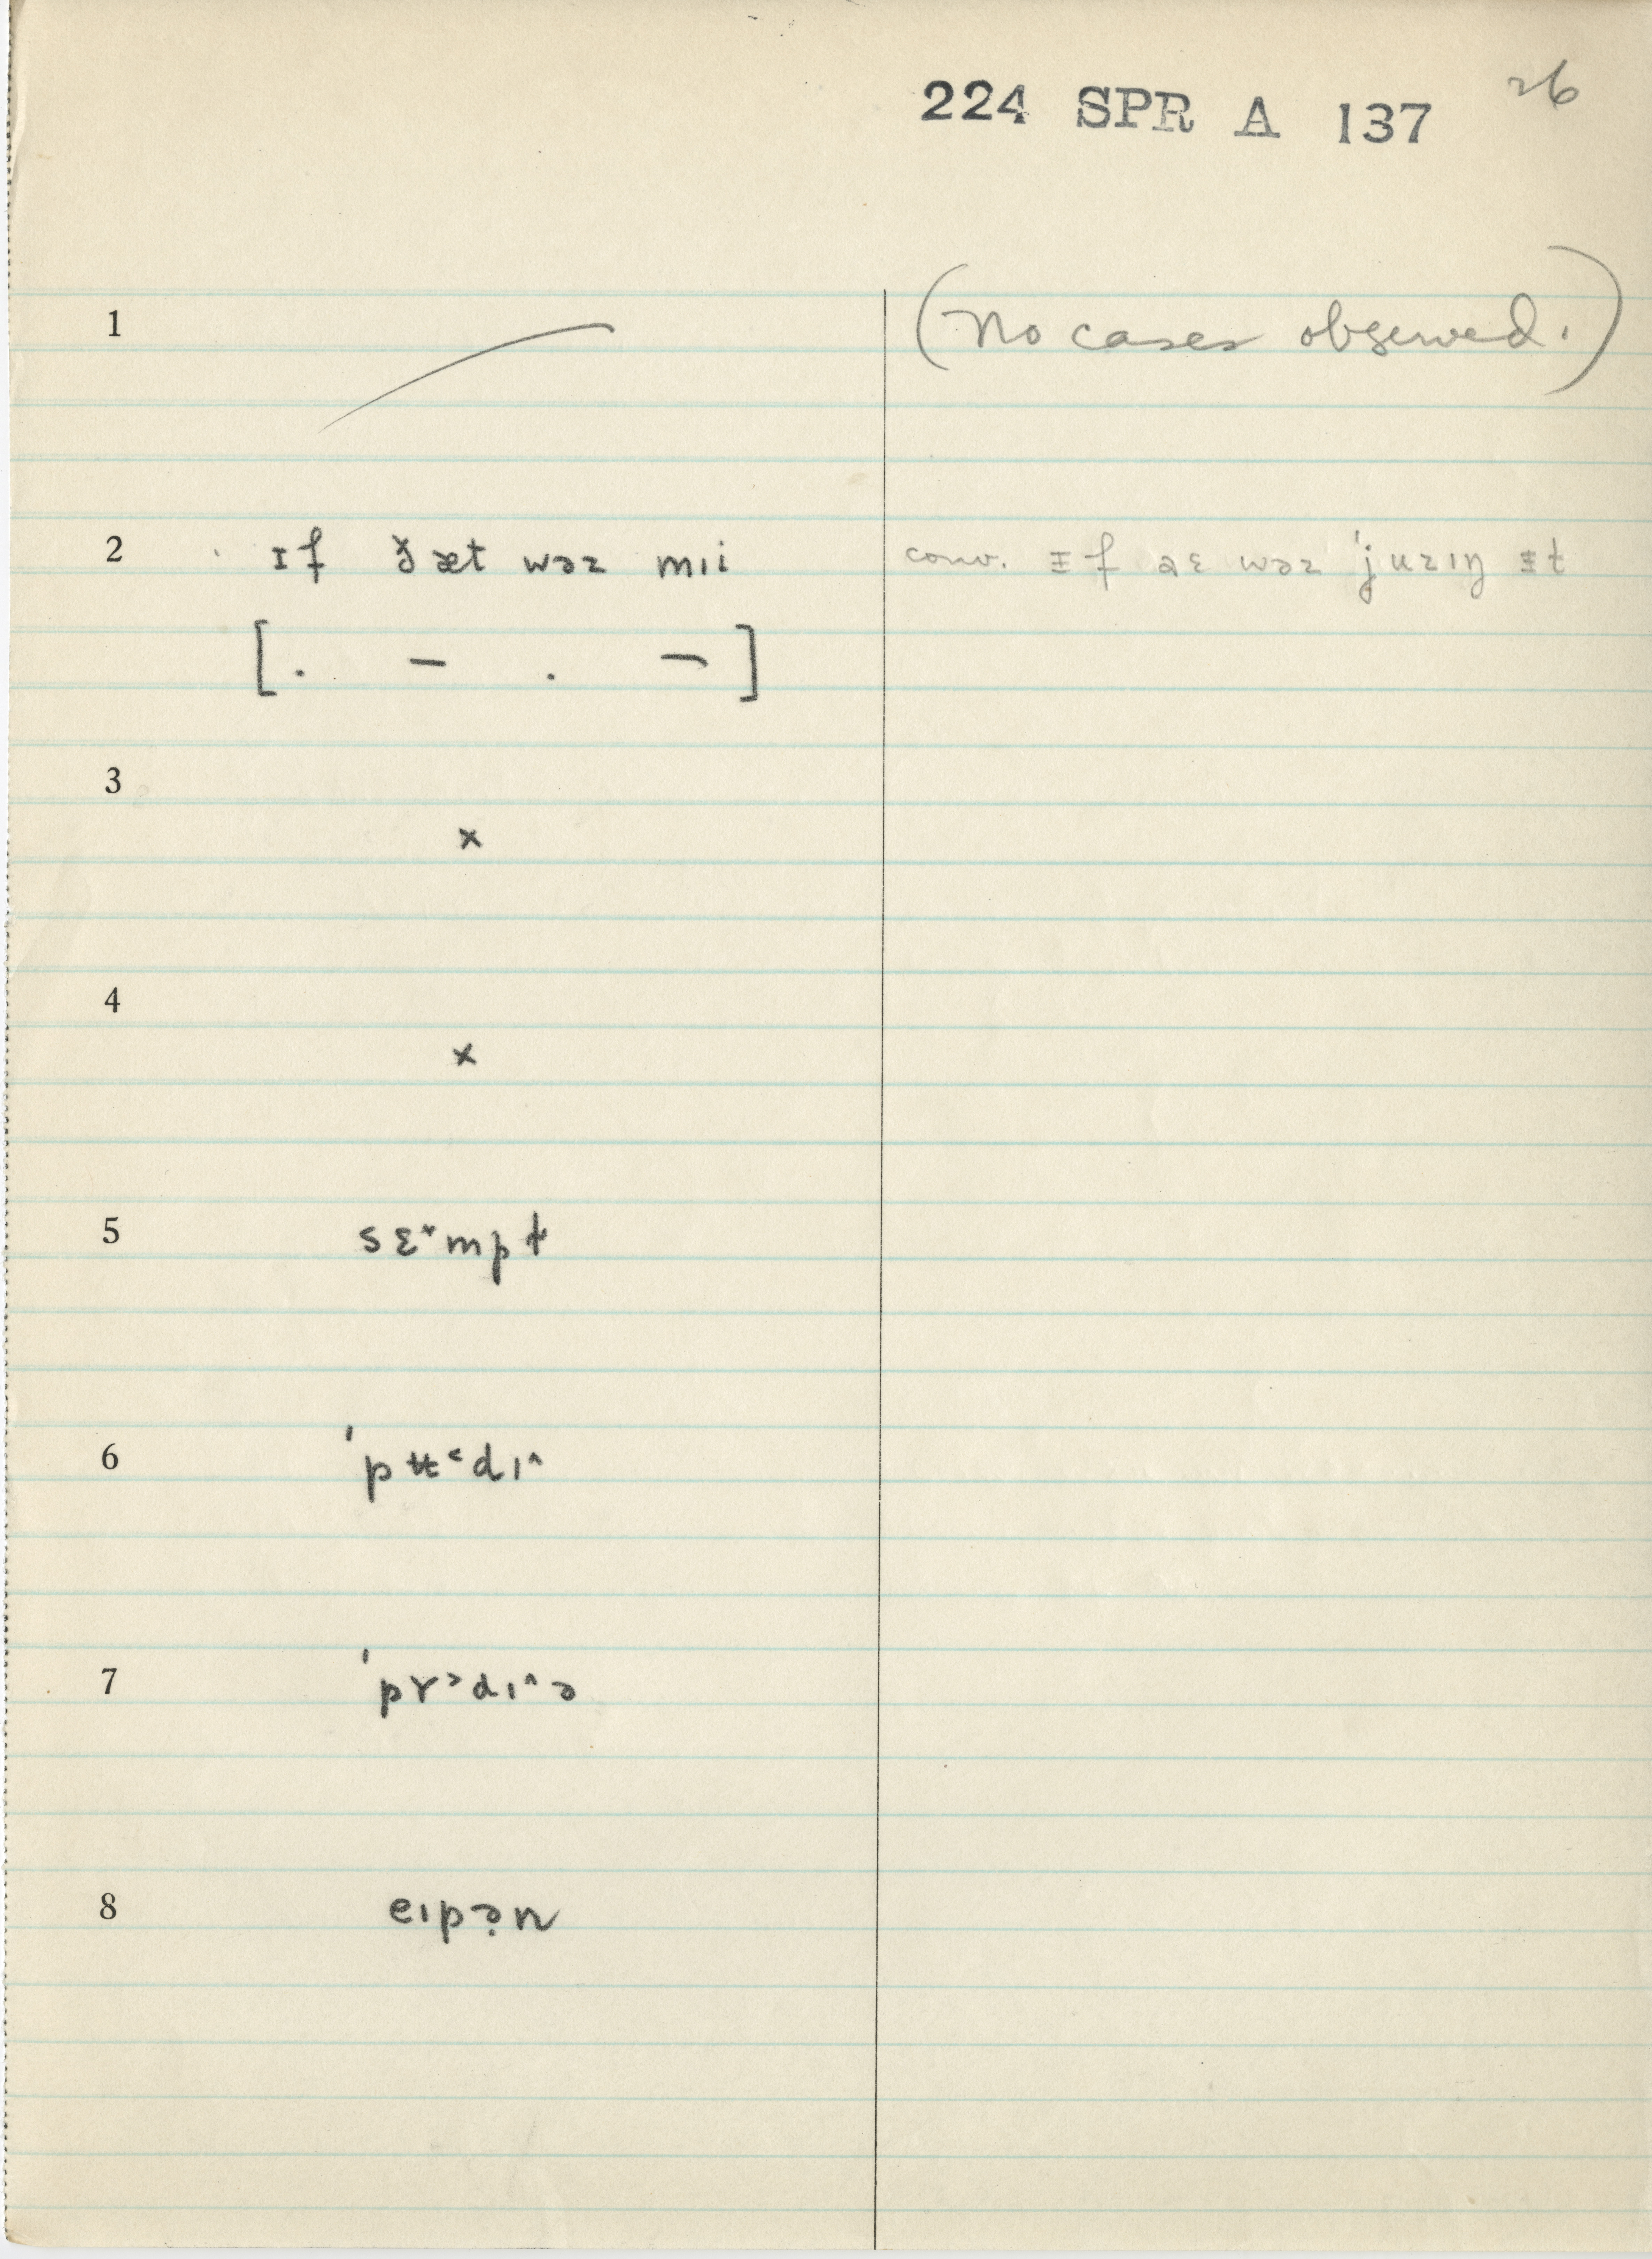 224 SPR A 137 26
1 (No cases observed.)
2 ɪf ðæt wəz mɪi conv. ɪf aɛ wəz ˈjuzɪŋ ɪt
[. – . –]
3
×
4
×
5 sɛ˟mpt
6 ˈpʉ˂dɪ˄
7 ˈpɤ˃dɪ˄ə
8 eɪpə̣n